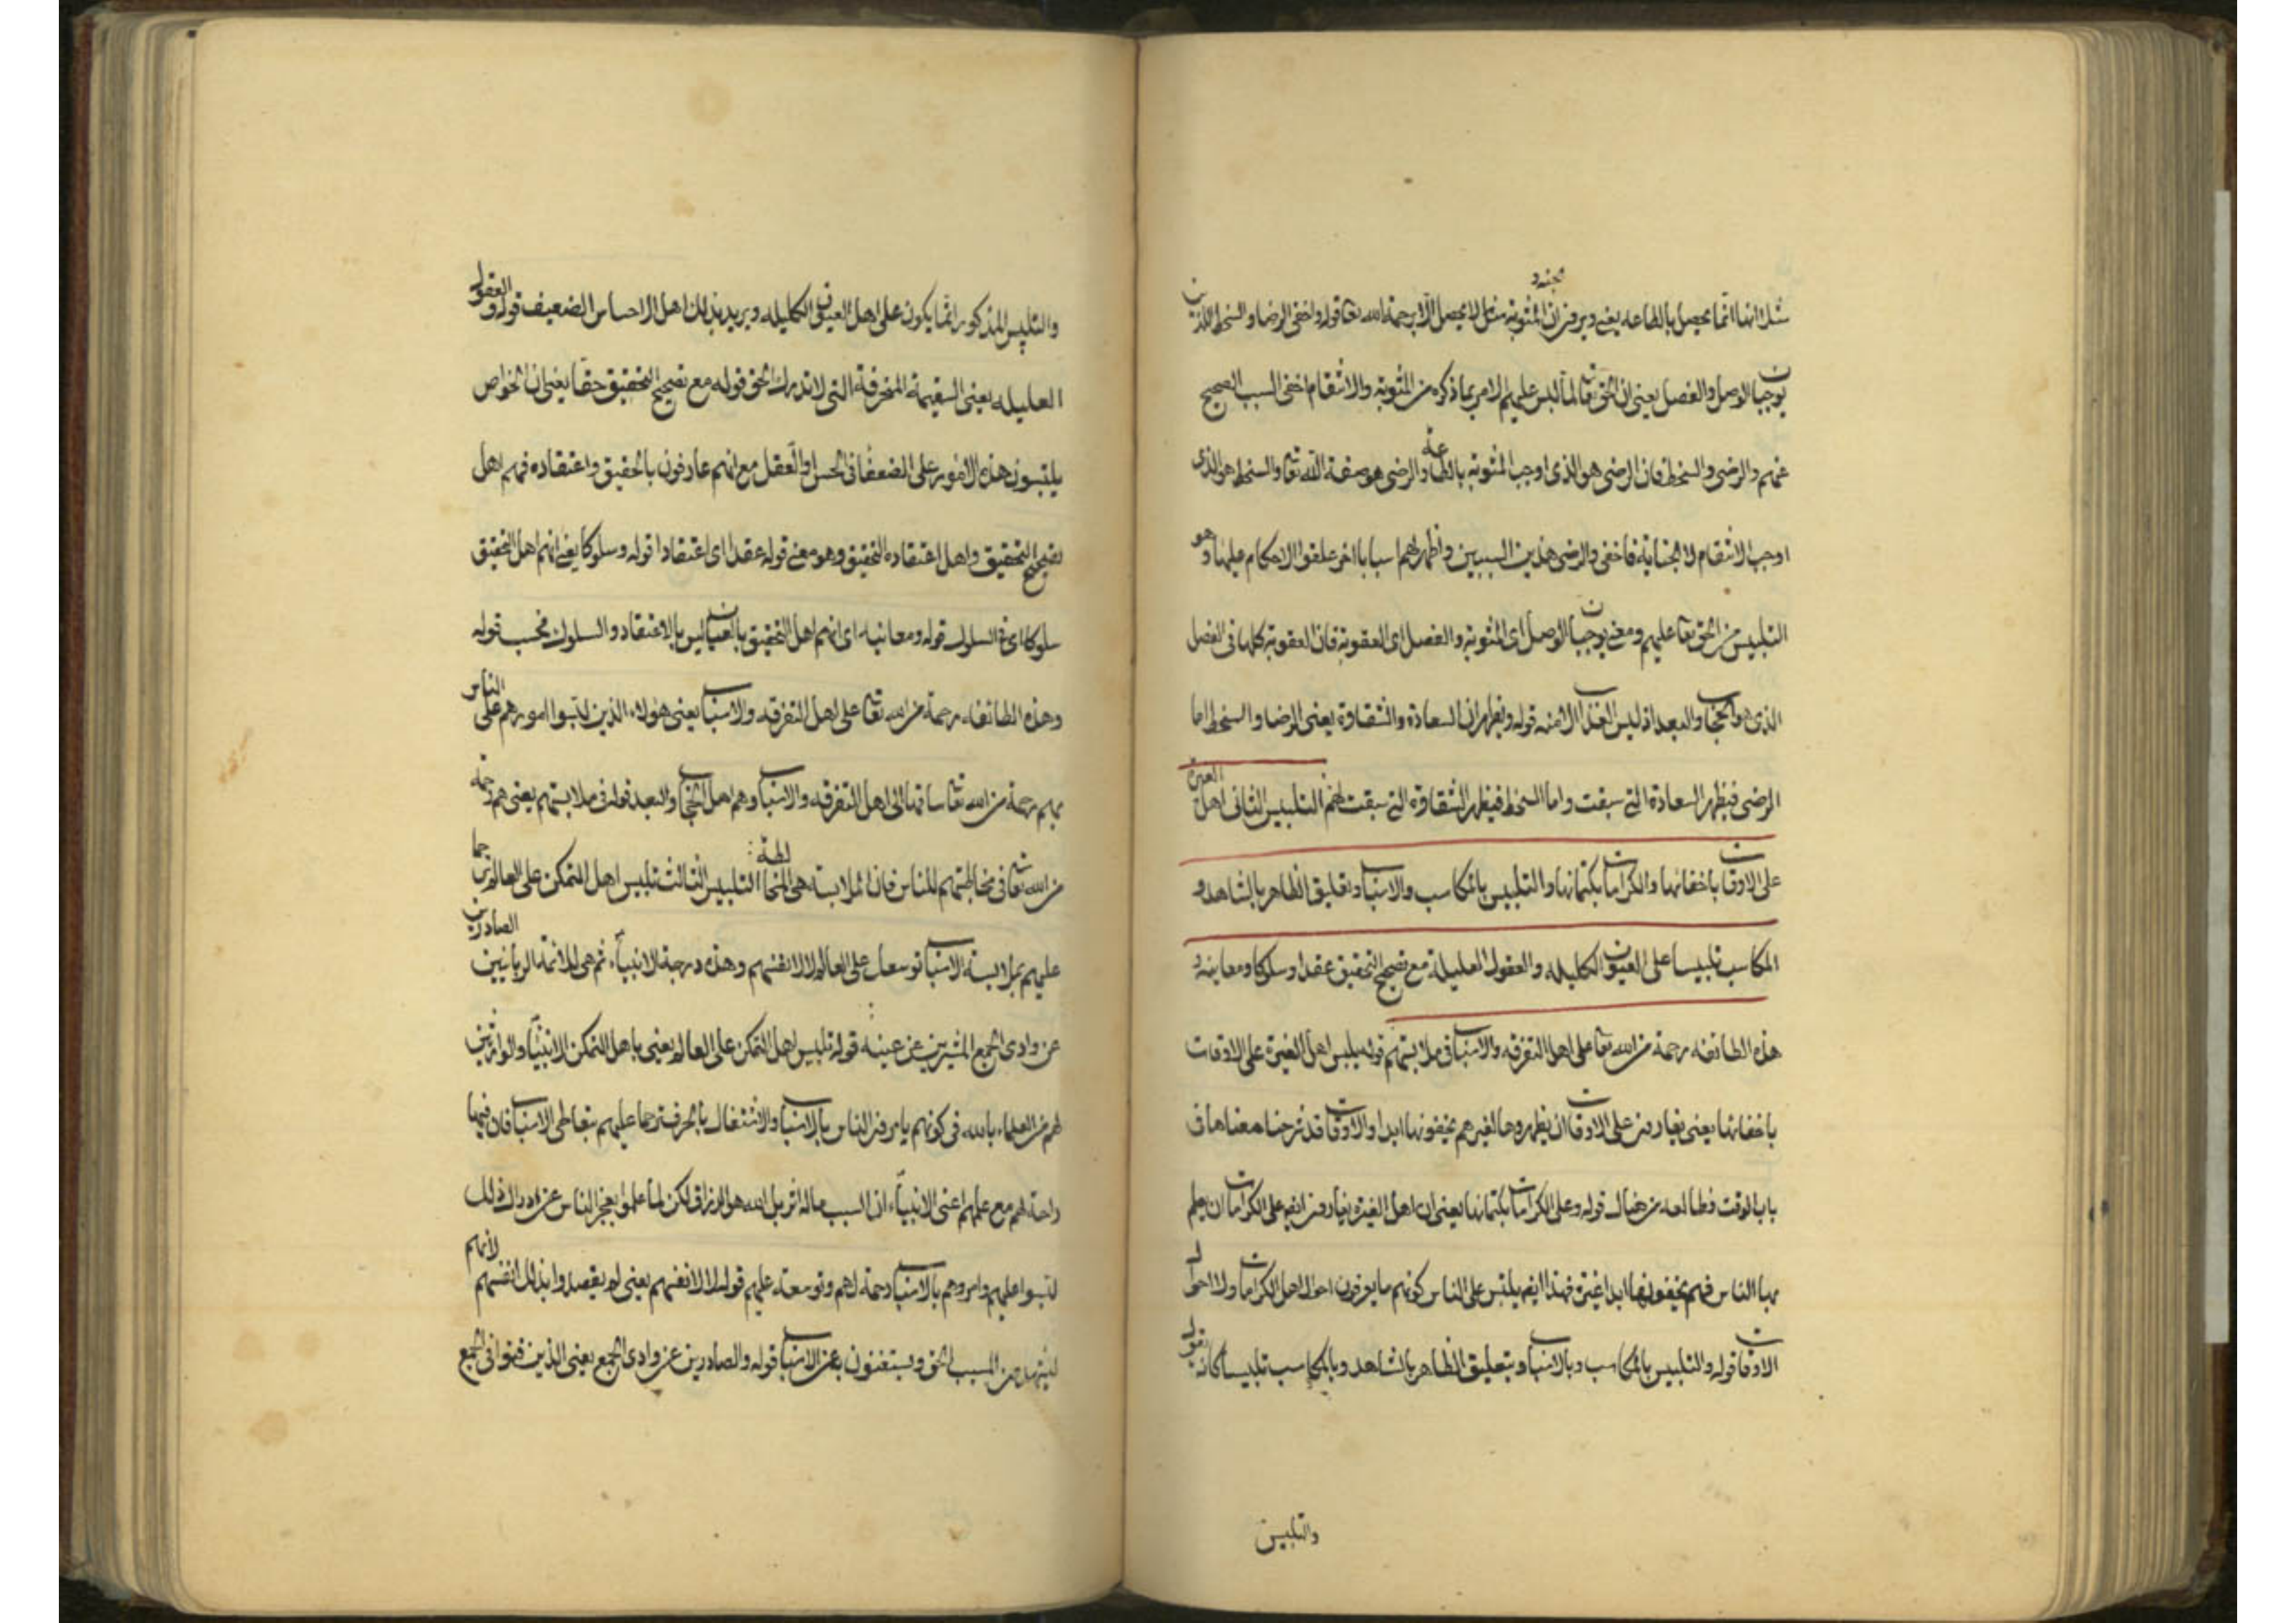 مثلا انها انما يحصل بالطاعه يعنى ويرون ان المثوبة مثلا لا يحصل الا برحمة الله تعا قوله واخفى الرضا والسخط اللذين
يوجبان الوصل والفصل يعنى ان الحق تعا لما لبس عليهم الامر بما ذكره من المثوبة والانتقام اخفى السبب الصحيح
عنهم والرضى والسخط فان الرضى هو الذى اوجب المثوبة بالطاعة والرضى هو صفة الله تعا والسخط هو الذى
اوجب الانتقام لا الجناية فاخفى والرضى هذين السببين واظهر لهم اسبابا اخر علقوا الاحكام عليها وهو
التلبيس من الحق تعا عليهم ومعنى يوجبان الوصل اى المثوبة والفصل اى العقوبة فان العقوبة كلها فى الفصل
الذى هو الحجاب والبعد اذ ليس العذاب الا منه قوله ويظهران السعادة والشقاوة يعنى الرضا والسخط اما
الرضى فيظهر السعادة التى سبقت واما السخط فيظهر الشقاوة التى سبقت لهم التلبيس الثانى اهل الغيرة
على الاوقات باخفائها والكرامات بكتمانها والتلبيس بالمكاسب والاسباب وتعليق الظاهر بالشاهد و
المكاسب تلبيسا على العيون الكليله والعقول العليلة مع تصحيح التحقيق عقدا وسلوكا ومعاينة و
هذه الطائفه رحمة من الله تعا على اهل التفرقه والاسباب فى ملابستهم قوله يلبس اهل الغيرة على الاوقات
باخفائها يعنى يغارون على الاوقات ان يظهروها لغيرهم يخفونها ابدا والاوقات قد شرحنا معناها فى
باب الوقت فطالعه من هناك قوله وعلى الكرامات بكتمانها يعنى ان اهل الغيرة يغارون ايضا على الكرامات ان يعلم
بها الناس فهم يخفونها ابدا غيرة فهذا ايضا يلتبس على الناس كونهم ما يعرفون احوال اهل الكرامات ولا احوال
الاوقات قوله والتلبيس بالمكاسب وبالاسباب وبتعليق الظاهر بالشاهد وبالمكاسب تلبيسا كانه يقول
والتلبيس
والتلبيس المذكور انما يكون على اهل العيون الكليله ويريد بذلك اهل الاحساس الضعيف قوله والعقول
العليله يعنى السقيمة المنحرفة التى لا تدرك الحق قوله مع تصحيح التحقيق حقا يعنى ان الخواص
يلبسون هذه الامور على الضعفا فى الحس او العقل مع انهم عارفون بالحقيق واعتقاده فهم اهل
تصحيح التحقيق واهل اعتقاده التحقيق وهو معنى قوله عقدا اى اعتقادا قوله وسلوكا يعنى انهم اهل التحقيق
سلوكا اى فى السلوك قوله ومعاينه اى انهم اهل التحقيق بالعيان ليس بالاعتقاد والسلوك فحسب قوله
وهذه الطائفه رحمة من الله تعا على اهل التفرقه والاسباب يعنى هؤلاء الذين لبسوا امورهم على الناس
بهم رحمة من الله تعا ساقها الى اهل التفرقه والاسباب وهم اهل الحجاب والبعد قوله فى ملابستهم يعنى هم رحمة
من الله تعا فى مخالطتهم للناس فان الملابسة هى المخالطة التلبيس الثالث تلبيس اهل التمكن على العالم ترحما
عليهم بملابسة الاسباب توسعا على العالم لا لانفسهم وهذه درجة الانبياء ثم هى للائمة الربانيين الصادرين
عن وادى الجمع المشيرين عن عينه قوله تلبيس اهل التمكن على العالم يعنى باهل التمكن الانبياء والوارثين
لهم من العلماء بالله فى كونهم يامرون الناس بالاسباب والاشتغال بالحرف ترحما عليهم بتعاطى الاسباب فان فيها
راحة لهم مع علمهم اعنى الانبياء ان السبب ماله اثر بل الله هو الرزاق لكن لما علموا بعجز الناس عن ادراك ذلك
لبسوا عليهم وامروهم بالاسباب رحمة لهم وتوسعة عليهم قوله لا لانفسهم يعنى لم يقصدوا بذلك انفسهم لانهم
المسبب الحق ويستغنون به عن الاسباب قوله والصادرين عن وادى الجمع يعنى الذين فنوا فى الجمع